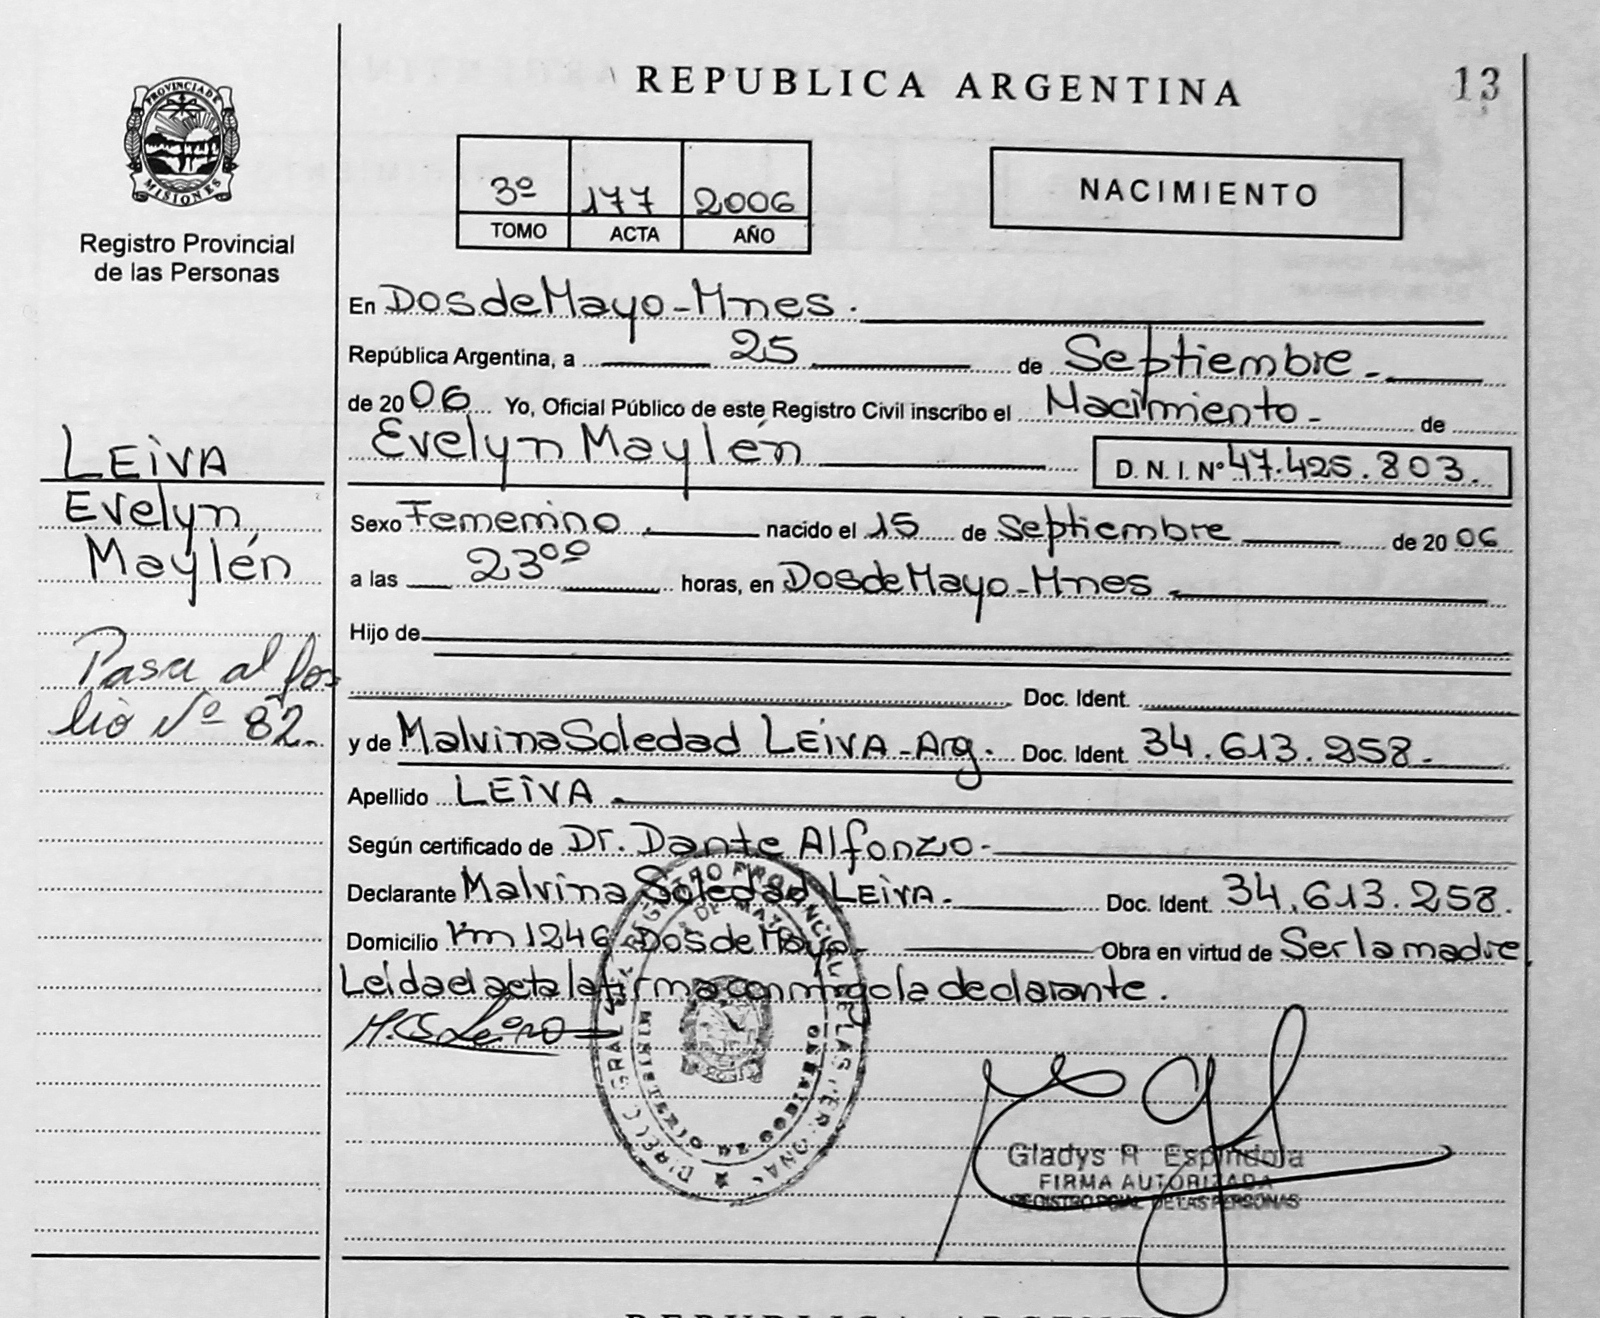 REPUBLICA ARGENTINA
13
PROVINCIA DE
MISIONES
Registro Provincial
de las Personas
3º 177 2006
TOMO ACTA AÑO
NACIMIENTO
En Dos de Mayo - Mnes.
República Argentina, a 25 de Septiembre.
de 2006 Yo, Oficial Público de este Registro Civil inscribo el Nacimiento de
Evelyn Maylén D. N. I. Nº 47.425.803.
LEIVA
Evelyn
Maylén
Pasa al fo-
lio Nº 82.
Sexo Femenino. nacido el 15 de Septiembre de 2006
a las 23ºº horas, en Dos de Mayo - Mnes.
Hijo de
Doc. Ident.
y de Malvina Soledad LEIVA - Arg. Doc. Ident. 34.613.258.
Apellido LEIVA.
Según certificado de Dr. Dante Alfonzo.
Declarante Malvina Soledad LEIVA. Doc. Ident. 34.613.258.
Domicilio Km 1246 Dos de Mayo. Obra en virtud de Ser la madre.
Leída el acta la firma conmigo la declarante.
Gladys R Espindola
FIRMA AUTORIZADA
REGISTRO PCIAL DE LAS PERSONAS
REPUBLICA ARGENTI